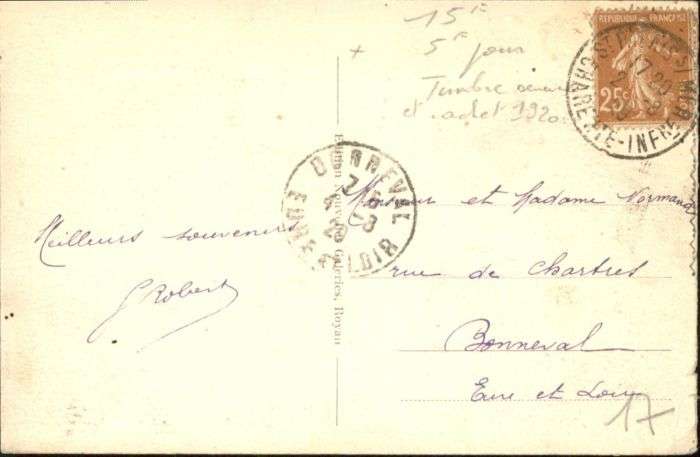 15F
5F pour
Timbre
et cachet 192
REPUBLIQUE FRANÇAISE
25c
CHARENTE-INFRE
17
BONNEVAL
EURE & LOIR
Edition Nouvelles Galeries, Royan
Meilleurs souvenirs
G Robert
Monsieur et Madame Normand
rue de Chartres
Bonneval
Eure et Loir
17